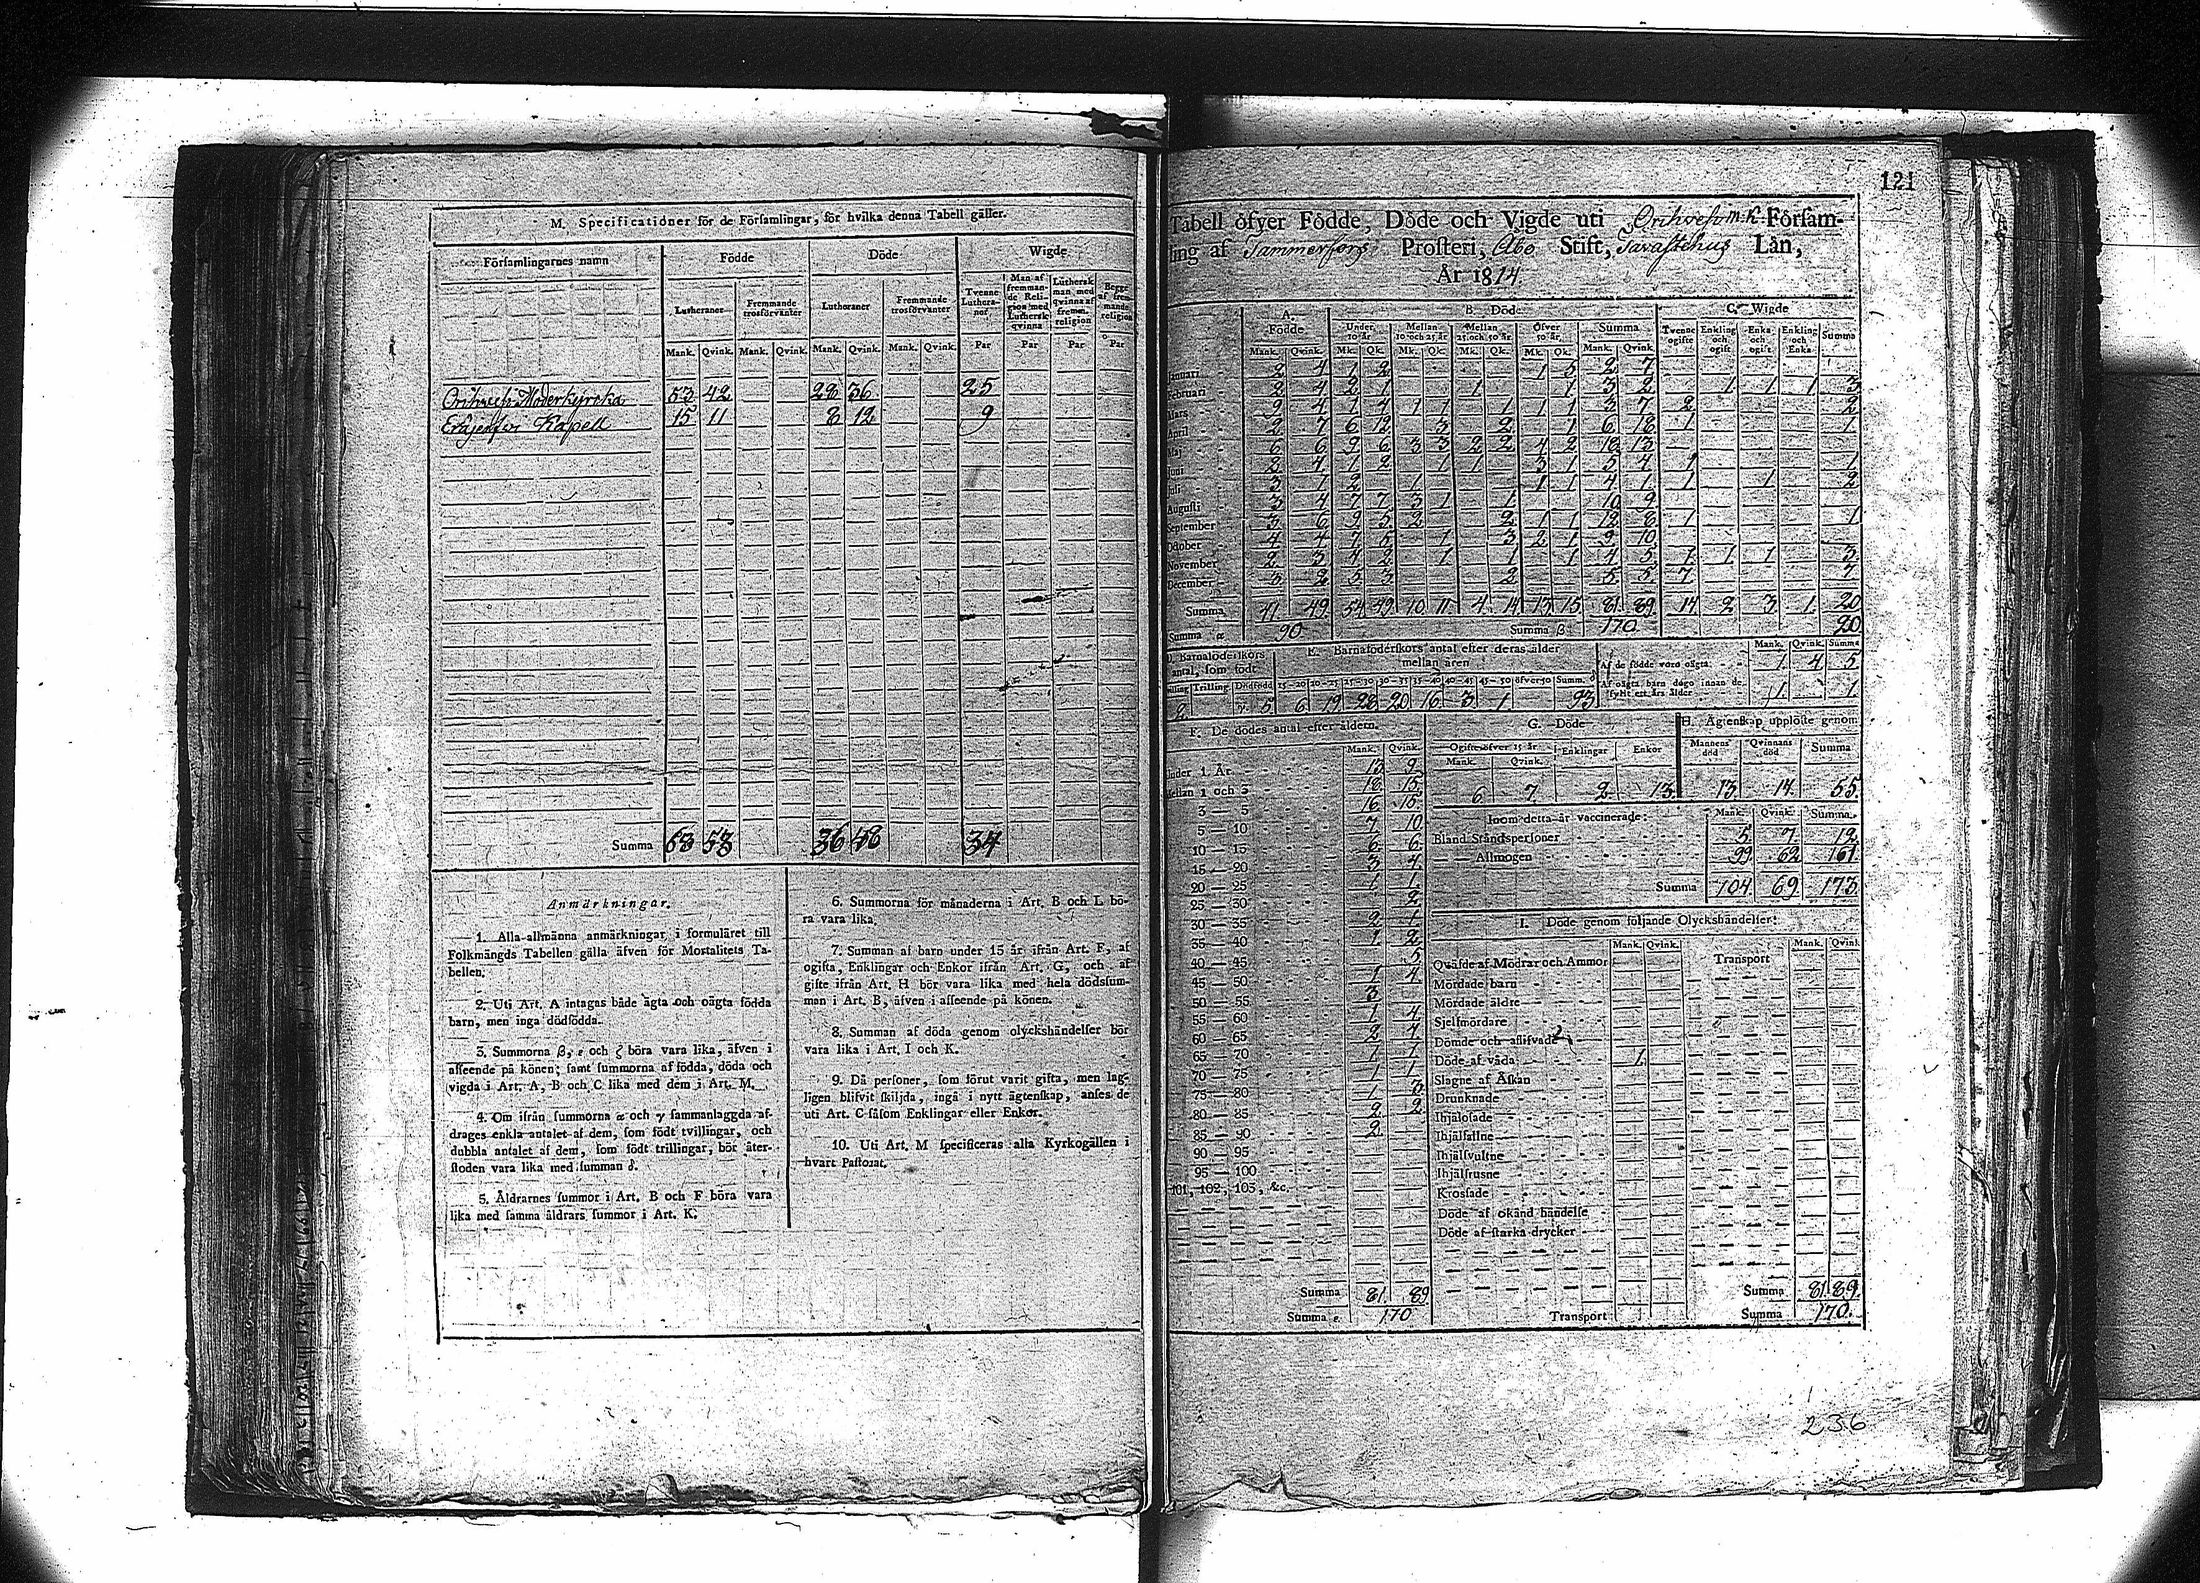 M. Specificationer för de Församlingar, för hvilka denna Tabell gäller.
Församlingarnes namn Födde Döde Wigde
Lutheraner Fremmande trosförvanter Lutheraner Fremmande trosförvanter Tvenne Lutheraner Man af fremmande Religion med Luthersk qvinna Luthersk man med qvinna af fremm. religion Begge af fremmande religion
Mank. Qvink. Mank. Qvink. Mank. Qvink. Mank. Qvink. Par Par Par Par
Orihvesi Moderkyrcka 53 42 28 36 25
Eräjerfvi Kapell 15 11 8 12 9
Summa 68 53 36 48 34
Anmärkningar.
1. Alla allmänna anmärkningar i formuläret till
Folkmängds Tabellen gälla äfven för Mortalitets Ta-
bellen.
2. Uti Art. A intagas både ägta och oägta födda
barn, men inga dödfödda.
3. Summorna β, ε och ζ böra vara lika, äfven i
afseende på könen; samt summorna af födda, döda och
vigda i Art. A, B och C lika med dem i Art. M.
4. Om ifrån summorna α och γ sammanlaggda af-
drages enkla antalet af dem, som födt tvillingar, och
dubbla antalet af dem, som födt trillingar, bör åter-
stoden vara lika med summan δ.
5. Åldrarnes summor i Art. B och F böra vara
lika med samma åldrars summor i Art. K.
6. Summorna för månaderna i Art. B och L bö-
ra vara lika.
7. Summan af barn under 15 år ifrån Art. F, af
ogifta, Enklingar och Enkor ifrån Art. G, och af
gifte ifrån Art. H bör vara lika med hela dödssum-
man i Art. B, äfven i afseende på könen.
8. Summan af döda genom olyckshändelser bör
vara lika i Art. I och K.
9. Då personer, som förut varit gifta, men lag-
ligen blifvit skiljda, ingå i nytt ägtenskap, anses de
uti Art. C såsom Enklingar eller Enkor.
10. Uti Art. M specificeras alla Kyrkogällen i
hvart Pastorat.
121
Tabell öfver Födde, Döde och Vigde uti Orihvesi M.K. Försam-
ling af Tammerfors Prosteri, Åbo Stift, Tavastehus Län,
År 1814
A. Födde B. Döde C. Wigde
Under 10 år Mellan 10 och 25 år Mellan 25 och 50 år Öfver 50 år Summa Tvenne ogifte Enkling och ogift Enka och ogift Enkling och Enka Summa
Mank. Qvink. Mk. Qk. Mk. Qk. Mk. Qk. Mk. Qk. Mank. Qvink.
Januari 2 4 1 2 1 5 2 7
Februari 2 4 2 1 1 1 3 2 1 1 1 3
Mars 9 4 1 4 1 1 1 1 1 3 7 2 2
April 2 7 6 12 3 2 1 6 18 1 1
Maj 6 6 9 6 3 3 2 2 4 2 18 13
Juni 2 4 1 2 1 1 3 1 5 4 1 1
Juli 3 1 2 1 1 1 4 1 1 1 2
Augusti 3 4 7 7 3 1 1 10 9
September 3 6 9 5 2 2 1 1 12 8 1 1
October 4 4 7 5 1 3 2 1 9 10
November 2 3 4 2 1 1 1 4 5 1 1 1 3
December 3 2 5 3 2 5 5 7 7
Summa 41 49 54 49 10 11 4 14 13 15 81 89 14 2 3 1 20
Summa α 90 Summa β 170 20
D. Barnaföderskors antal, som födt
Tvilling Trilling Dödfödd
2 5
E. Barnaföderskors antal efter deras ålder mellan åren
15-20 20-25 25-30 30-35 35-40 40-45 45-50 öfver 50 Summ. δ
6 19 28 20 16 3 1 93
Mank. Qvink. Summa
Af de födde voro oägta 1 4 5
Af oägta barn dogo innan de fyllt ett års ålder 1 1
F. De dödes antal efter åldern.
Mank. Qvink.
Under 1 År 13 9
Mellan 1 och 3 18 15
3 — 5 16 15
5 — 10 7 10
10 — 15 6 6
15 — 20 3 4
20 — 25 1 1
25 — 30 2
30 — 35 2 1
35 — 40 1 2
40 — 45 5
45 — 50 1 4
50 — 55 3
55 — 60 1 4
60 — 65 2 4
65 — 70 1
70 — 75 1 1
75 — 80 1 3
80 — 85 2 2
85 — 90 2
90 — 95
95 — 100
101, 102, 103, &c.
Summa 81 89
Summa ε. 170
G. Döde
Ogifte öfver 15 år Enklingar Enkor
Mank. Qvink.
6 7 2 13
H. Ägtenskap upplöste genom
Mannens död Qvinnans död Summa
13 14 55
Inom detta år vaccinerade: Mank. Qvink. Summa
Bland Ståndspersoner 5 7 12
— — Allmogen 99 62 161
Summa 104 69 173
I. Döde genom följande Olyckshändelser:
Mank. Qvink. Mank. Qvink.
Qväfde af Mödrar och Ammor Transport
Mördade barn
Mördade äldre
Sjelfmördare
Dömde och aflifvade
Döde af våda 1
Slagne af Åskan
Drunknade
Ihjälosade
Ihjälfallne
Ihjälsvultne
Ihjälfrusne
Krossade
Döde af okänd händelse
Döde af starka drycker
Summa 81 89
Transport Summa 170.
236